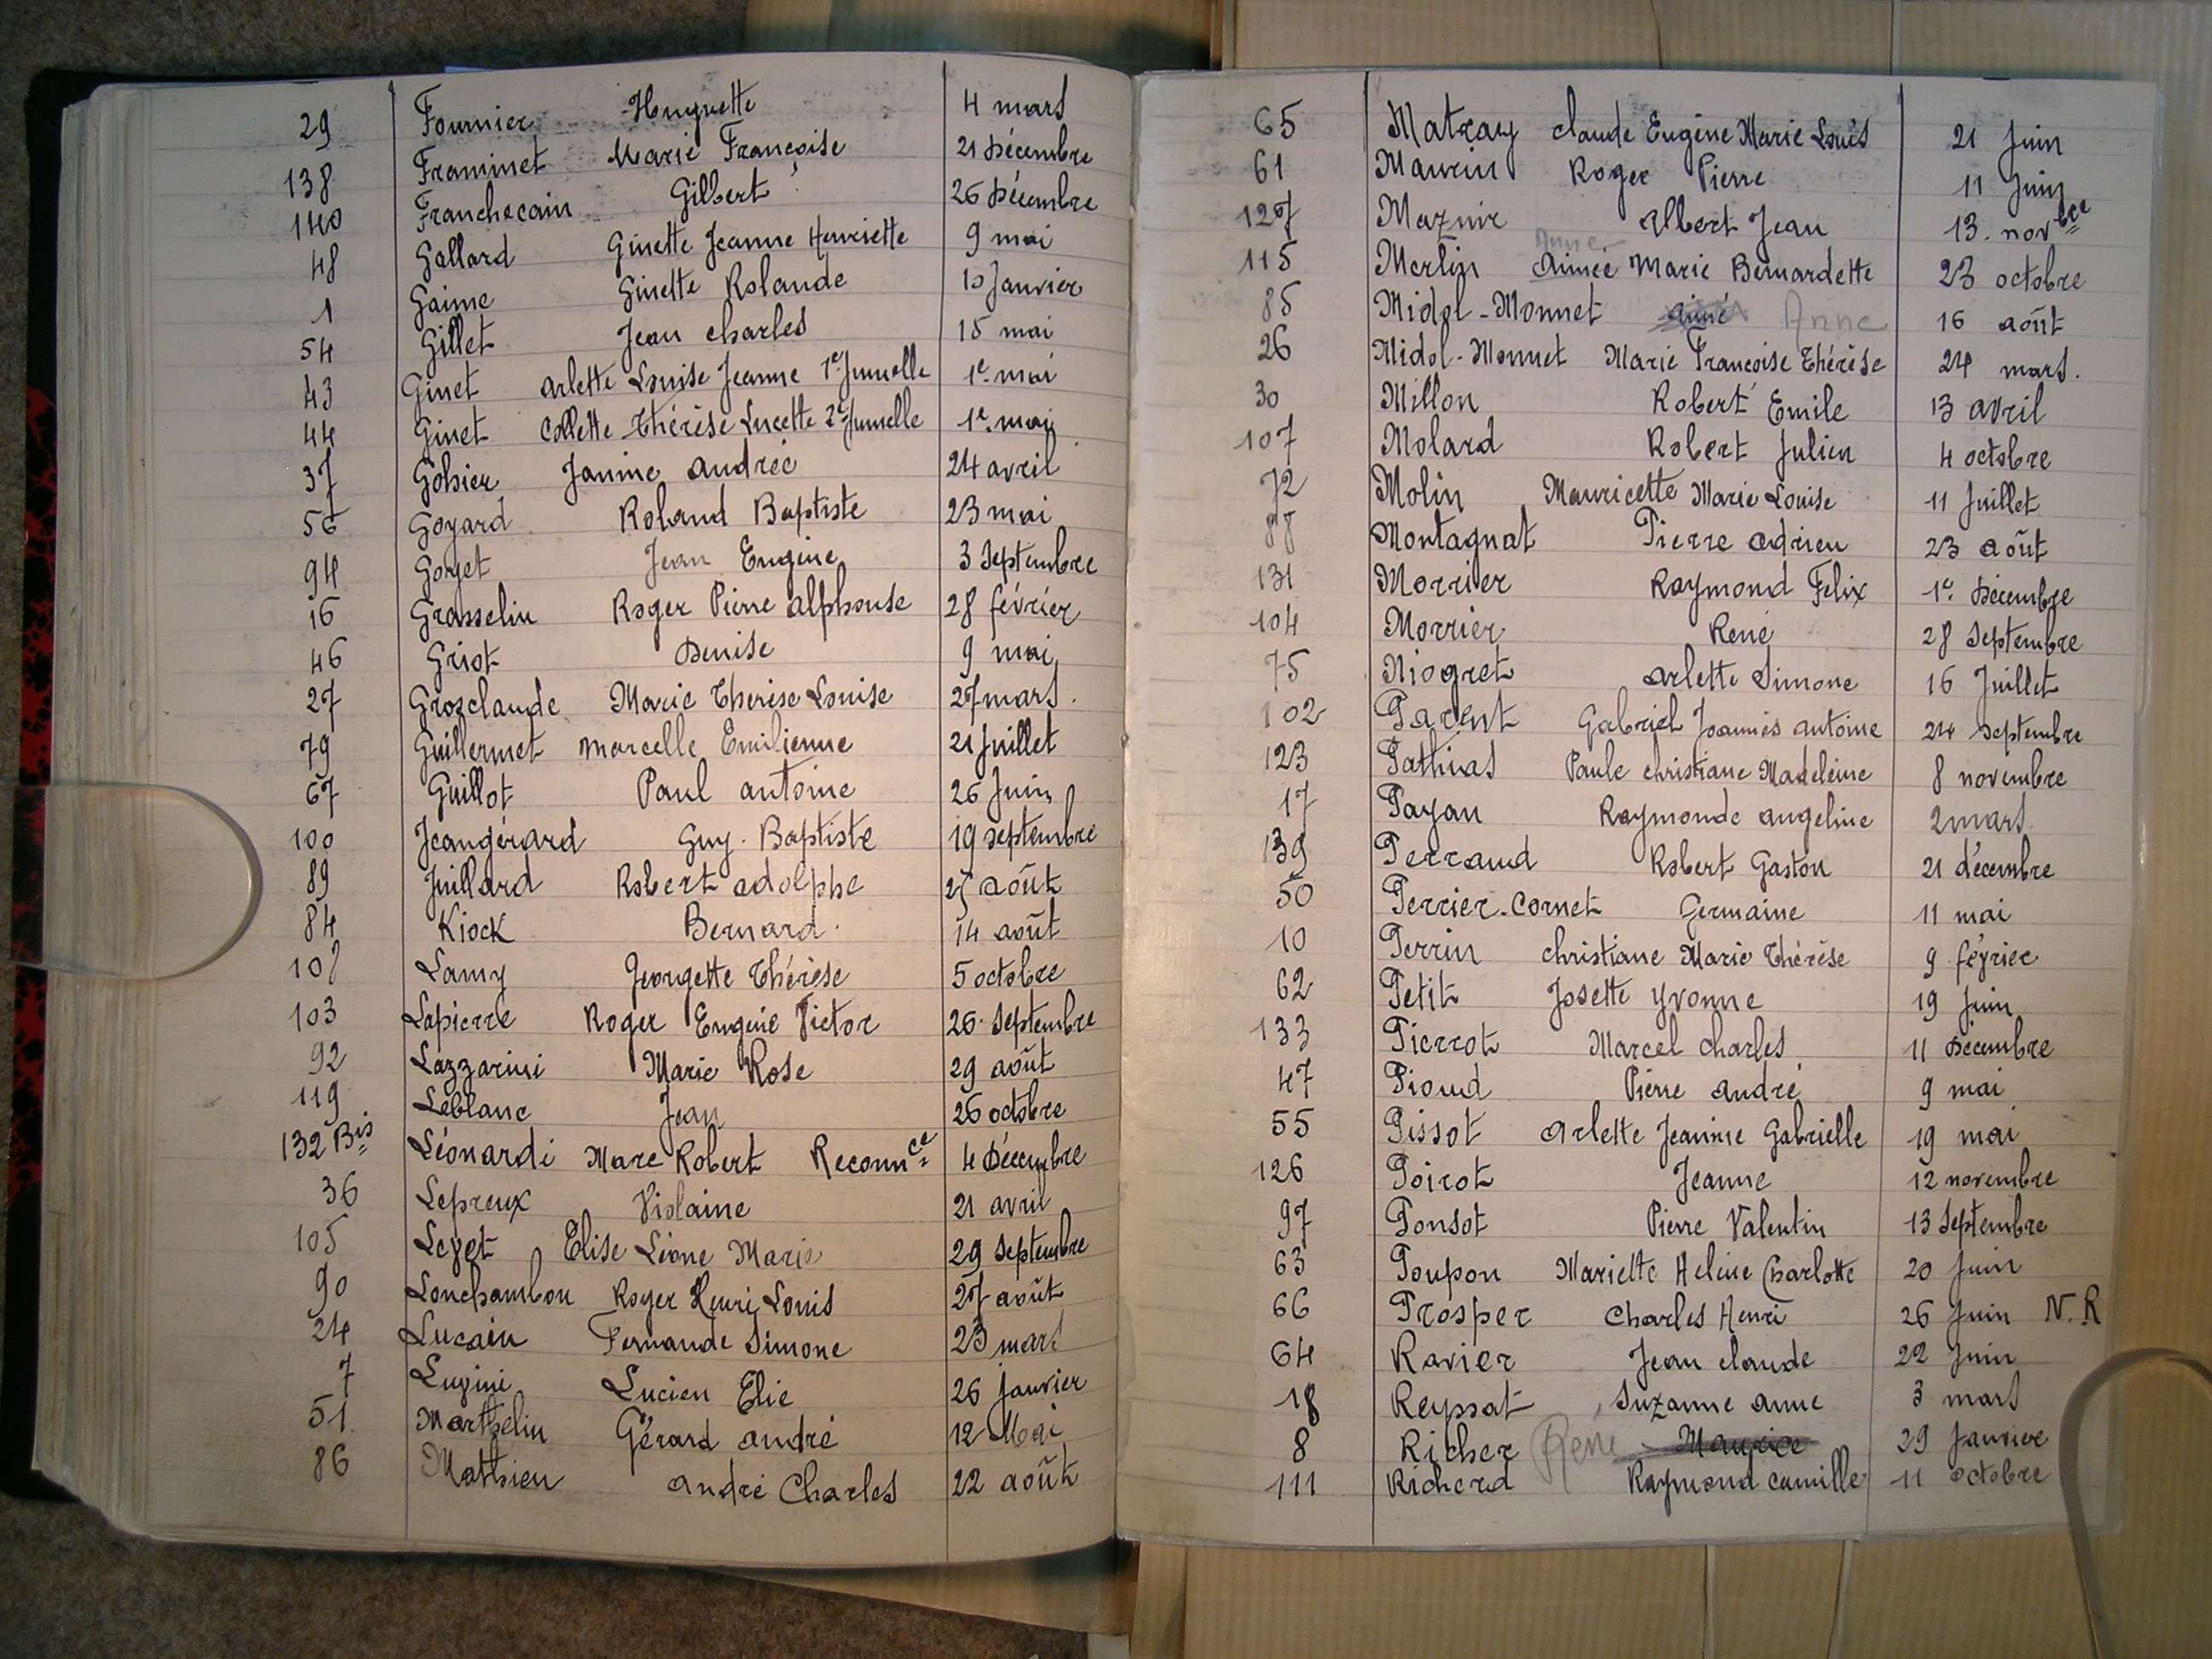 29 Fournier Huguette 4 mars
138 Framinet Marie Françoise 21 Décembre
140 Franchecain Gilbert 26 Décembre
48 Gallard Ginette Jeanne Henriette 9 mai
1 Gaime Ginette Rolande 10 Janvier
54 Gillet Jean Charles 15 mai
43 Ginet Arlette Louise Jeanne 1e Jumelle 1e mai
44 Ginet Collette Thérèse Lucette 2e Jumelle 1e mai
37 Gohier Janine Andrée 24 avril
56 Goyard Roland Baptiste 23 mai
94 Goyet Jean Eugène 3 Septembre
16 Grasselin Roger Pierre Alphonse 28 février
46 Griot Denise 9 mai
27 Grosclaude Marie Thérèse Louise 27 mars.
79 Guillermet Marcelle Emilienne 21 Juillet
67 Guillot Paul Antoine 26 Juin
100 Jeangérard Guy. Baptiste 19 septembre
89 Juillard Robert Adolphe août
84 Kiock Bernard. 14 août
Lamy Georgette Thérèse 5 octobre
103 Lapierre Roger Eugène Victor 26. Septembre
92 Lazzarini Marie Rose 29 août
119 Leblanc Jean 26 octobre
132 Bis Léonardi Marc Robert Reconnce 4 Décembre
36 Lepreux Violaine 21 avril
105 Leyet Elise Léone Marie 29 Septembre
90 Lonchambon Roger Henri Louis 27 août
24 Lucain Fernande Simone 23 mars
7 Lugini Lucien Elie 26 janvier
51. Marthelin Gérard André 12 Mai
86 Mathieu André Charles 22 août
65 Matray Claude Eugène Marie Louis 21 Juin
61 Maurin Roger Pierre 11 Juin
127 Maznir Albert Jean 13. novbre
Anne
115 Merlin Aimée Marie Bernardette 23 octobre
85 Midol-Monnet Aimé Anne 16 août
26 Midol-Monnet Marie Françoise Thérèse 24 mars.
30 Millon Robert Emile 13 avril
107 Molard Robert Julien 4 octobre
72 Molin Mauricette Marie Louise 11 Juillet
88 Montagnat Pierre Adrien 23 août
131 Morrier Raymond Felix 1e. Décembre
104 Morrier René 28 Septembre
75 Niogret Arlette Simone 16 Juillet
102 Parent Gabriel Joannès Antoine 24 Septembre
123 Pathias Paule Christiane Madeleine 8 novembre
17 Payan Raymonde Angeline 2 mars
139 Perraud Robert Gaston 21 décembre
50 Perrier-Cornet Germaine 11 mai
10 Perrin Christiane Marie Thérèse 9 février
62 Petit Josette Yvonne 19 Juin
133 Pierrot Marcel Charles 11 Décembre
47 Pioud Pierre André 9 mai
55 Pissot Arlette Jeanine Gabrielle 19 mai
126 Poirot Jeanne 12 novembre
97 Ponsot Pierre Valentin 13 Septembre
63 Poupon Mariette Helène Charlotte 20 Juin
66 Prosper Charles Henri 26 Juin N.R
64 Ravier Jean Claude 22 Juin
18 Reyssat Suzanne Anne 3 mars
8 Richer René Maurice 29 Janvier
111 Richerd Raymond Camille 11 octobre